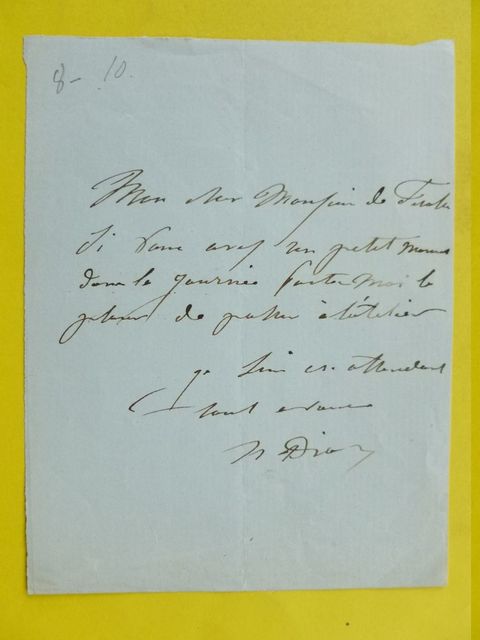 8 - 10.
Mon cher Monsieur de
Si vous avez un petit moment
dans la journée faites moi le
plaisir de passer à l'atelier
je suis en attendant
tout à vous
N Diaz